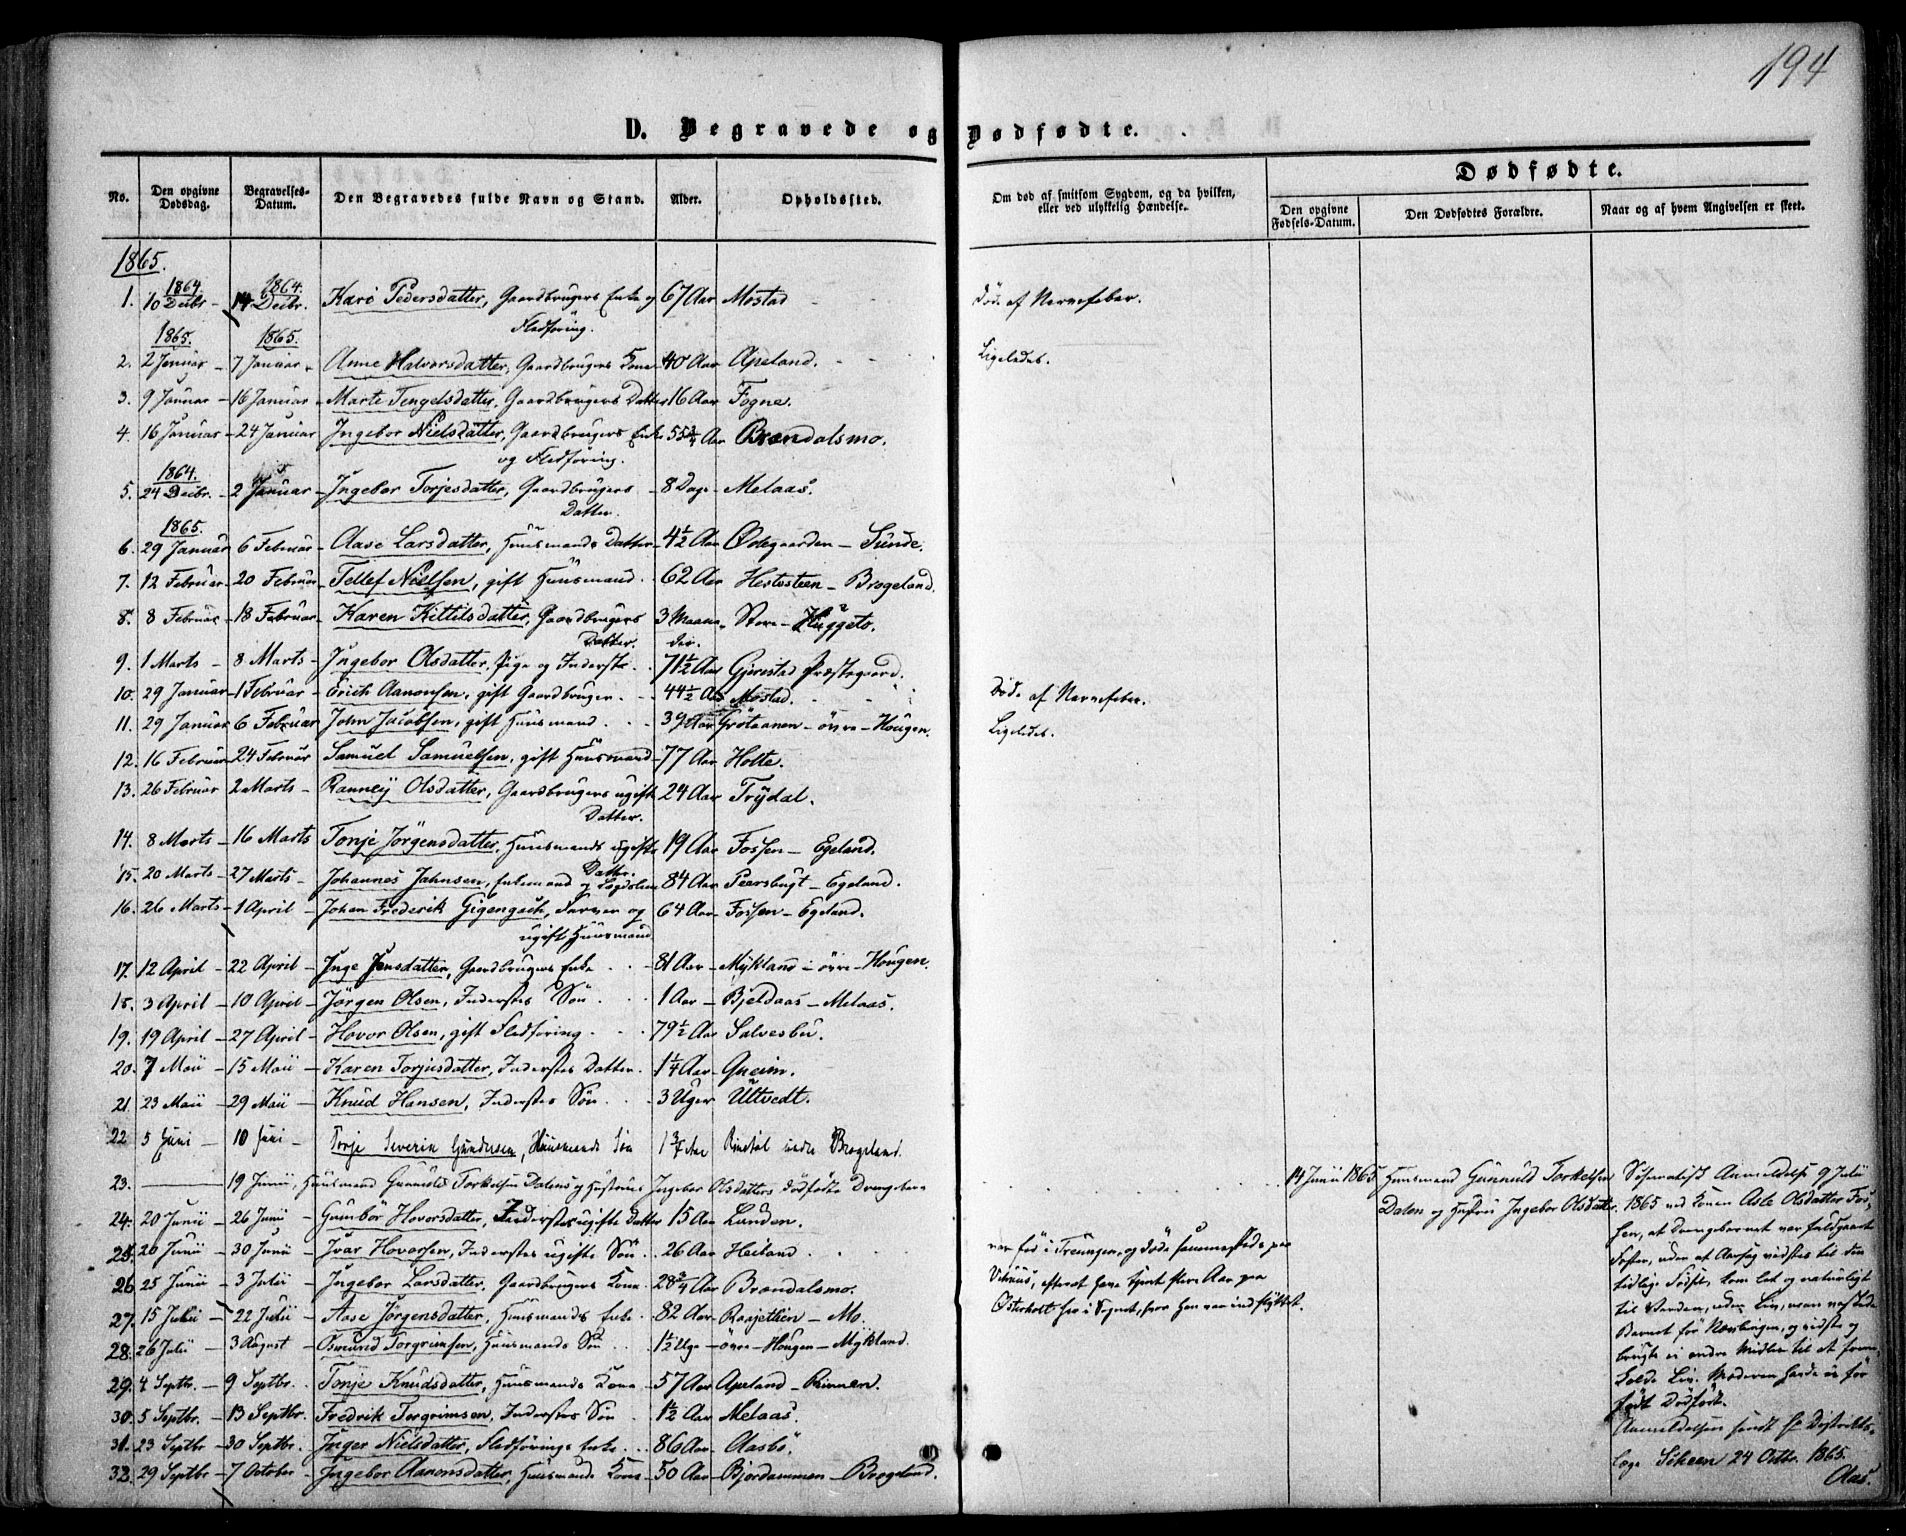 194
D. Begravede og Dødfødte.
No.
Den opgivne Dødsdag.
Begravelses-Datum.
Den Begravedes fulde Navn og Stand.
Alder.
Opholdssted.
Om død af smitsom Sygdom, og da hvilken, eller ved ulykkelig Hændelse.
Dødfødte.
Den opgivne Fødsels-Datum.
Den Dødfødtes Forældre.
Naar og af hvem Angivelsen er skeet.
1865.
1864. 1864.
1. 10 Decbr. 14 Decbr. Kari Pedersdatter, Gaardbrugers Enke og 67 Aar Mostad Død af Nervefeber.
Fledføring.
1865. 1865.
2. 2 Januar 7 Januar Anne Halvorsdatter, Gaardbrugers Kone 40 Aar Apeland. Ligeledes.
3. 9 Januar 16 Januar Marte Tengelsdatter, Gaardbrugers Datter 16 Aar Fogne.
4. 16 Januar 24 Januar Ingebor Nielsdatter, Gaardbrugers Enke 55 3/4 Aar Brøndalsmo.
og Fledføring.
1864.
5. 24 Decbr. 2 Januar Ingebor Torjesdatter, Gaardbrugers 8 Dage Melaas.
Datter.
1865.
6. 29 Januar 6 Februar Aase Larsdatter, Huusmands Datter 4 1/2 Aar Ødegaarden - Sunde.
7. 12 Februar 20 Februar Tellef Nielsen, gift Huusmand. 62 Aar Hestesteen - Brøgeland.
8. 8 Februar 18 Februar Karen Kittilsdatter, Gaardbrugers 3 Maane- Store - Huggeto.
Datter. der.
9. 1 Marts 8 Marts Ingebor Olsdatter, Pige og Inderste. 71 1/2 Aar Gjerestad Præstegaard.
10. 29 Januar 1 Februar Erich Aanonsen, gift Gaardbruger. 44 1/2 Aar Mostad. Død af Nervefeber.
11. 29 Januar 6 Februar John Jacobsen, gift Huusmand. 39 Aar Grótaanen - övre - Hougen. Ligeledes.
12. 16 Februar 24 Februar Samuel Samuelsen, gift Huusmand 77 Aar Holte.
13. 26 Februar 2 Marts Ranney Olsdatter, Gaardbrugers ugifte 24 Aar Trydal.
Datter.
14. 8 Marts 16 Marts Tonje Jörgensdatter, Huusmands ugifte 19 Aar Fossen - Egeland.
Datter.
15. 20 Marts 27 Marts Johannes Jahnsen, Enkemand og Lægdslem 84 Aar Peersbugt - Egeland.
16. 26 Marts 1 April Johan Frederik Gigengach, Farver og 64 Aar Fossen - Egeland.
ugift Huusmand
17. 12 April 22 April Inge Jensdatter, Gaardbrugers Enke 81 Aar Mykland i övre - Hougen.
18. 3 April 10 April Jörgen Olsen, Inderstes Sön 1 Aar Bjeldaas - Melaas.
19. 19 April 27 April Hovor Olsen, gift Fledføring. 79 1/2 Aar Salvesbu.
20. 7 Maii 15 Maii Karen Torjusdatter, Inderstes Datter. 1 1/4 Aar Gneim.
21 23 Maii 29 Maii Knud Hansen, Inderstes Sön 3 Uger Ultvedt.
22 5 Juni 10 Juni Torje Severin Gundersen, Huusmands Sön 1 3/7 Aar nedre Brøgeland.
23. 19 Junii, Huusmand Gunnulf Torkelsen Dalens og Hustrues Ingebor Olsdatters dödfödte Drengebarn
14 Junii 1865 Huusmand Gunnuld Torkelsen
Dalen og Hustru Ingebor Olsdatter.
Anmeldelse 9 Julii
1865 ved Konen Asle Olsdatter Fos-
sen, at Drengebarnet var fuldgaaet
Foster, uden at Aarsag vidstes til den
tidlige Födsel, kom let og naturligt
til Verden, uden Liv, man
Barnet för Næsten ingen, og vidste og
brugte ei andre Midler til at frem-
kalde Liv. Moderen havde ei för
födt Dödfödt.
Anmeldelsen sendt Hr Distrikts-
læge Scheen 24 Octbr. 1865.
Aas.
24. 20 Junii 26 Junii Gunbör Hovorsdatter, Inderstes ugifte Datter 15 Aar Lunden.
25. 20 Junii 30 Junii Ivar Hovorsen, Inderstes ugifte Sön 26 Aar Heiland
var föd i Treungen, og döde sammesteds paa
Vitriis, efterat have tjent flere Aar paa
Österholt her i Sognet, hvor han var indflyttet.
26. 25 Junii 3 Julii Ingebor Larsdatter, Gaardbrugers Kone 28 3/4 Aar Brøndalsmo.
27. 15 Julii 22 Julii Aase Jörgensdatter, Huusmands Enke 82 Aar Raajethien - Mo.
28. 26 Julii 3 August Osmund Torgrimsen, Huusmands Sön 1 1/2 Uge övre - Hougen - Mykland.
29. 4 Septbr. 9 Septbr. Tonje Knudsdatter, Huusmands Kone 57 Aar Apeland - Rinnen.
30. 5 Septbr. 13 Septbr. Fredrik Torgrimsen, Inderstes Sön 1 1/2 Aar Melaas.
31. 23 Septbr 30 Septbr. Inger Nielsdatter, Fledførings Enke 86 Aar Aasbö.
32. 29 Septbr 7 October Ingebor Aanonsdatter, Huusmands Kone 50 Aar Bjordammen - Brøgeland.